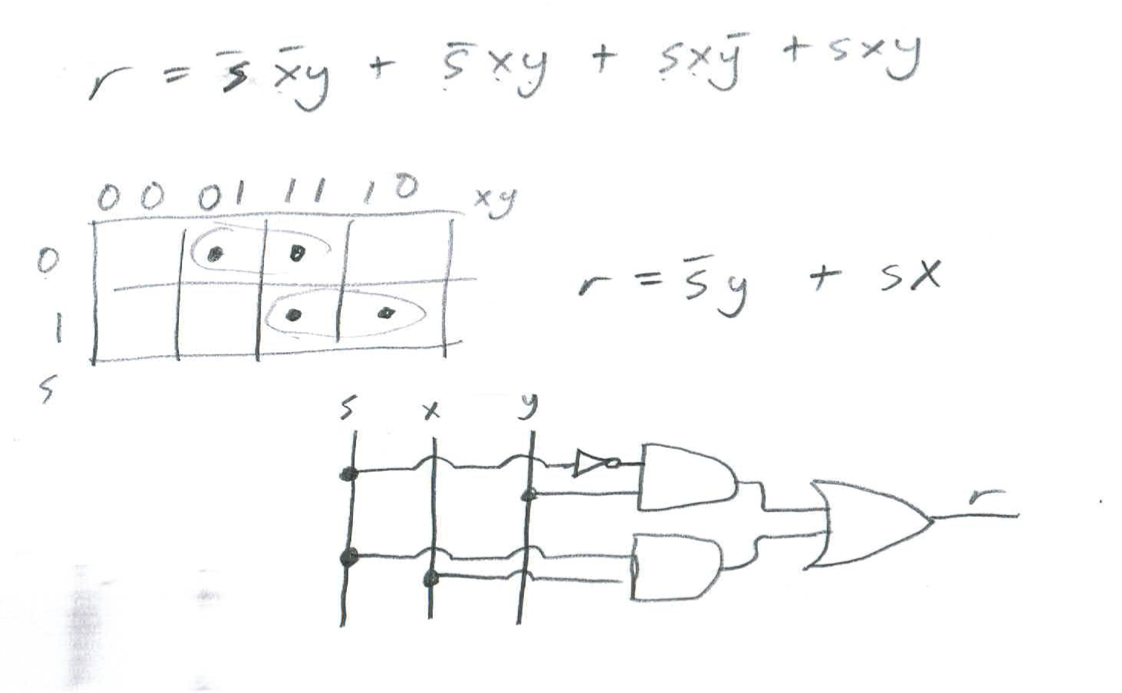 r = s̄ x̄y + s̄xy + sxȳ + sxy
00 01 11 10 xy
0
r = s̄y + sx
1
s
s x y
r